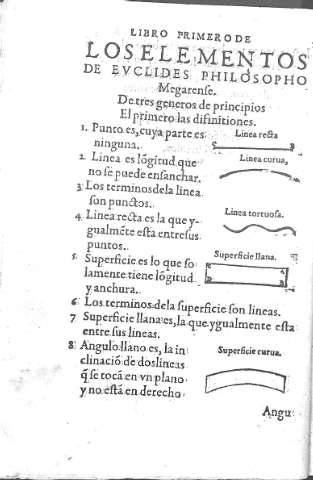 LIBRO PRIMERO DE
LOS ELEMENTOS
DE EVCLIDES PHILOSOPHO
Megarense.
De tres generos de principios
El primero las difiniciones.
1. Punto es, cuya parte es
ninguna.
Linea recta
2. Linea es lõgitud que
no se puede ensanchar.
Linea curua,
3. Los terminos de la linea
son punctos.
4. Linea recta es la que y-
gualmẽte esta entre sus
puntos.
Linea tortuosa.
5. Superficie es lo que so
lamente tiene lõgitud
y anchura.
Superficie llana.
6. Los terminos de la superficie son lineas.
7 Superficie llana es, la que ygualmente esta
entre sus lineas.
8. Angulo llano es, la in
clinació de dos lineas
q̃ se tocã en vn plano
y no estã en derecho
Superficie curua.
Angu